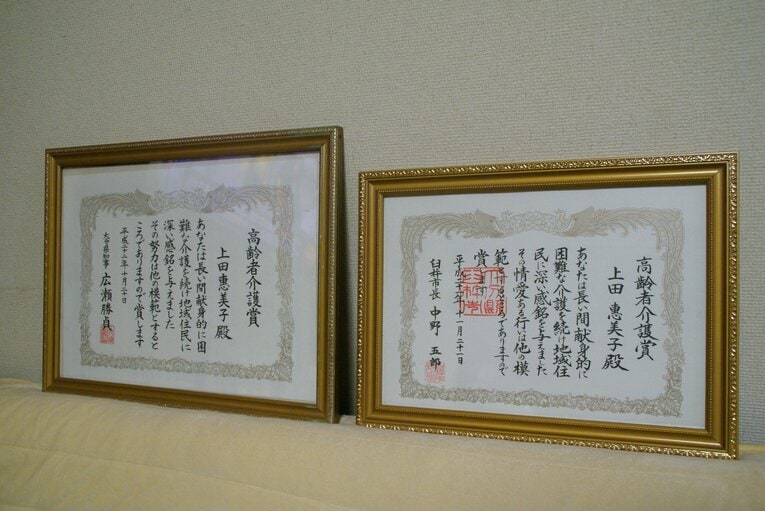 高齢者介護賞
上田恵美子殿
あなたは長い間献身的に困
難な介護を続け地域住民に
深い感銘を与えました
その努力は他の模範とすると
ころでありますので賞します
平成二十二年十月二十日
大分県知事 広瀬勝貞
高齢者介護賞
上田 惠美子殿
あなたは長い間献身的に
困難な介護を続け地域住
民に深い感銘を与えました
その情愛ある行いは他の模
範とするものでありますので
賞します
臼杵市長 中野 五郎